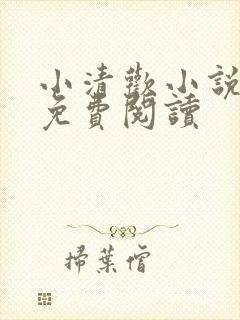 小清歡小說
免費閱讀
掃葉僧